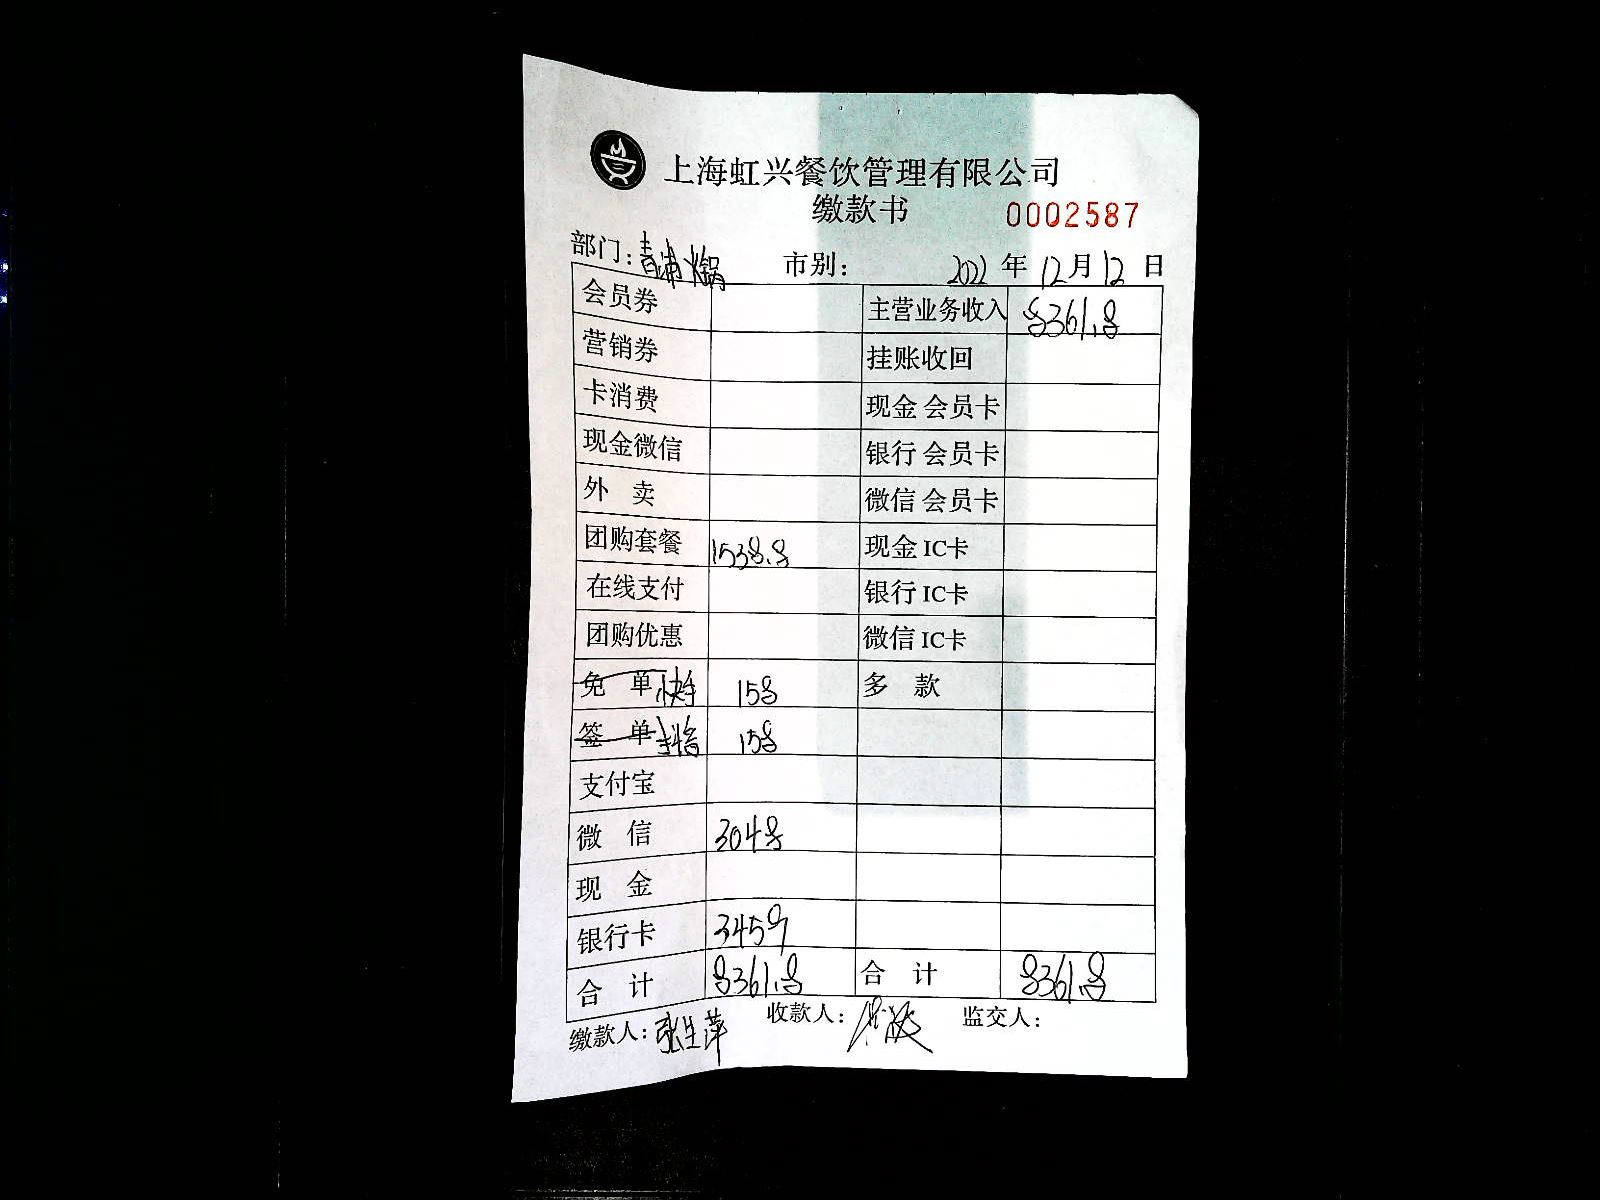 上海虹兴餐饮管理有限公司
缴款书 0002587
部门：青浦火锅 市别： 2022 年 12 月 12 日
会员券 主营业务收入 8361.8
营销券 挂账收回
卡消费 现金 会员卡
现金微信 银行 会员卡
外 卖 微信 会员卡
团购套餐 1538.8 现金 IC卡
在线支付 银行 IC卡
团购优惠 微信 IC卡
免 单 快手 158 多 款
签 单 158
支付宝
微 信 3048
现 金
银行卡 3459
合 计 8361.8 合 计 8361.8
缴款人：张生萍 收款人： 监交人：